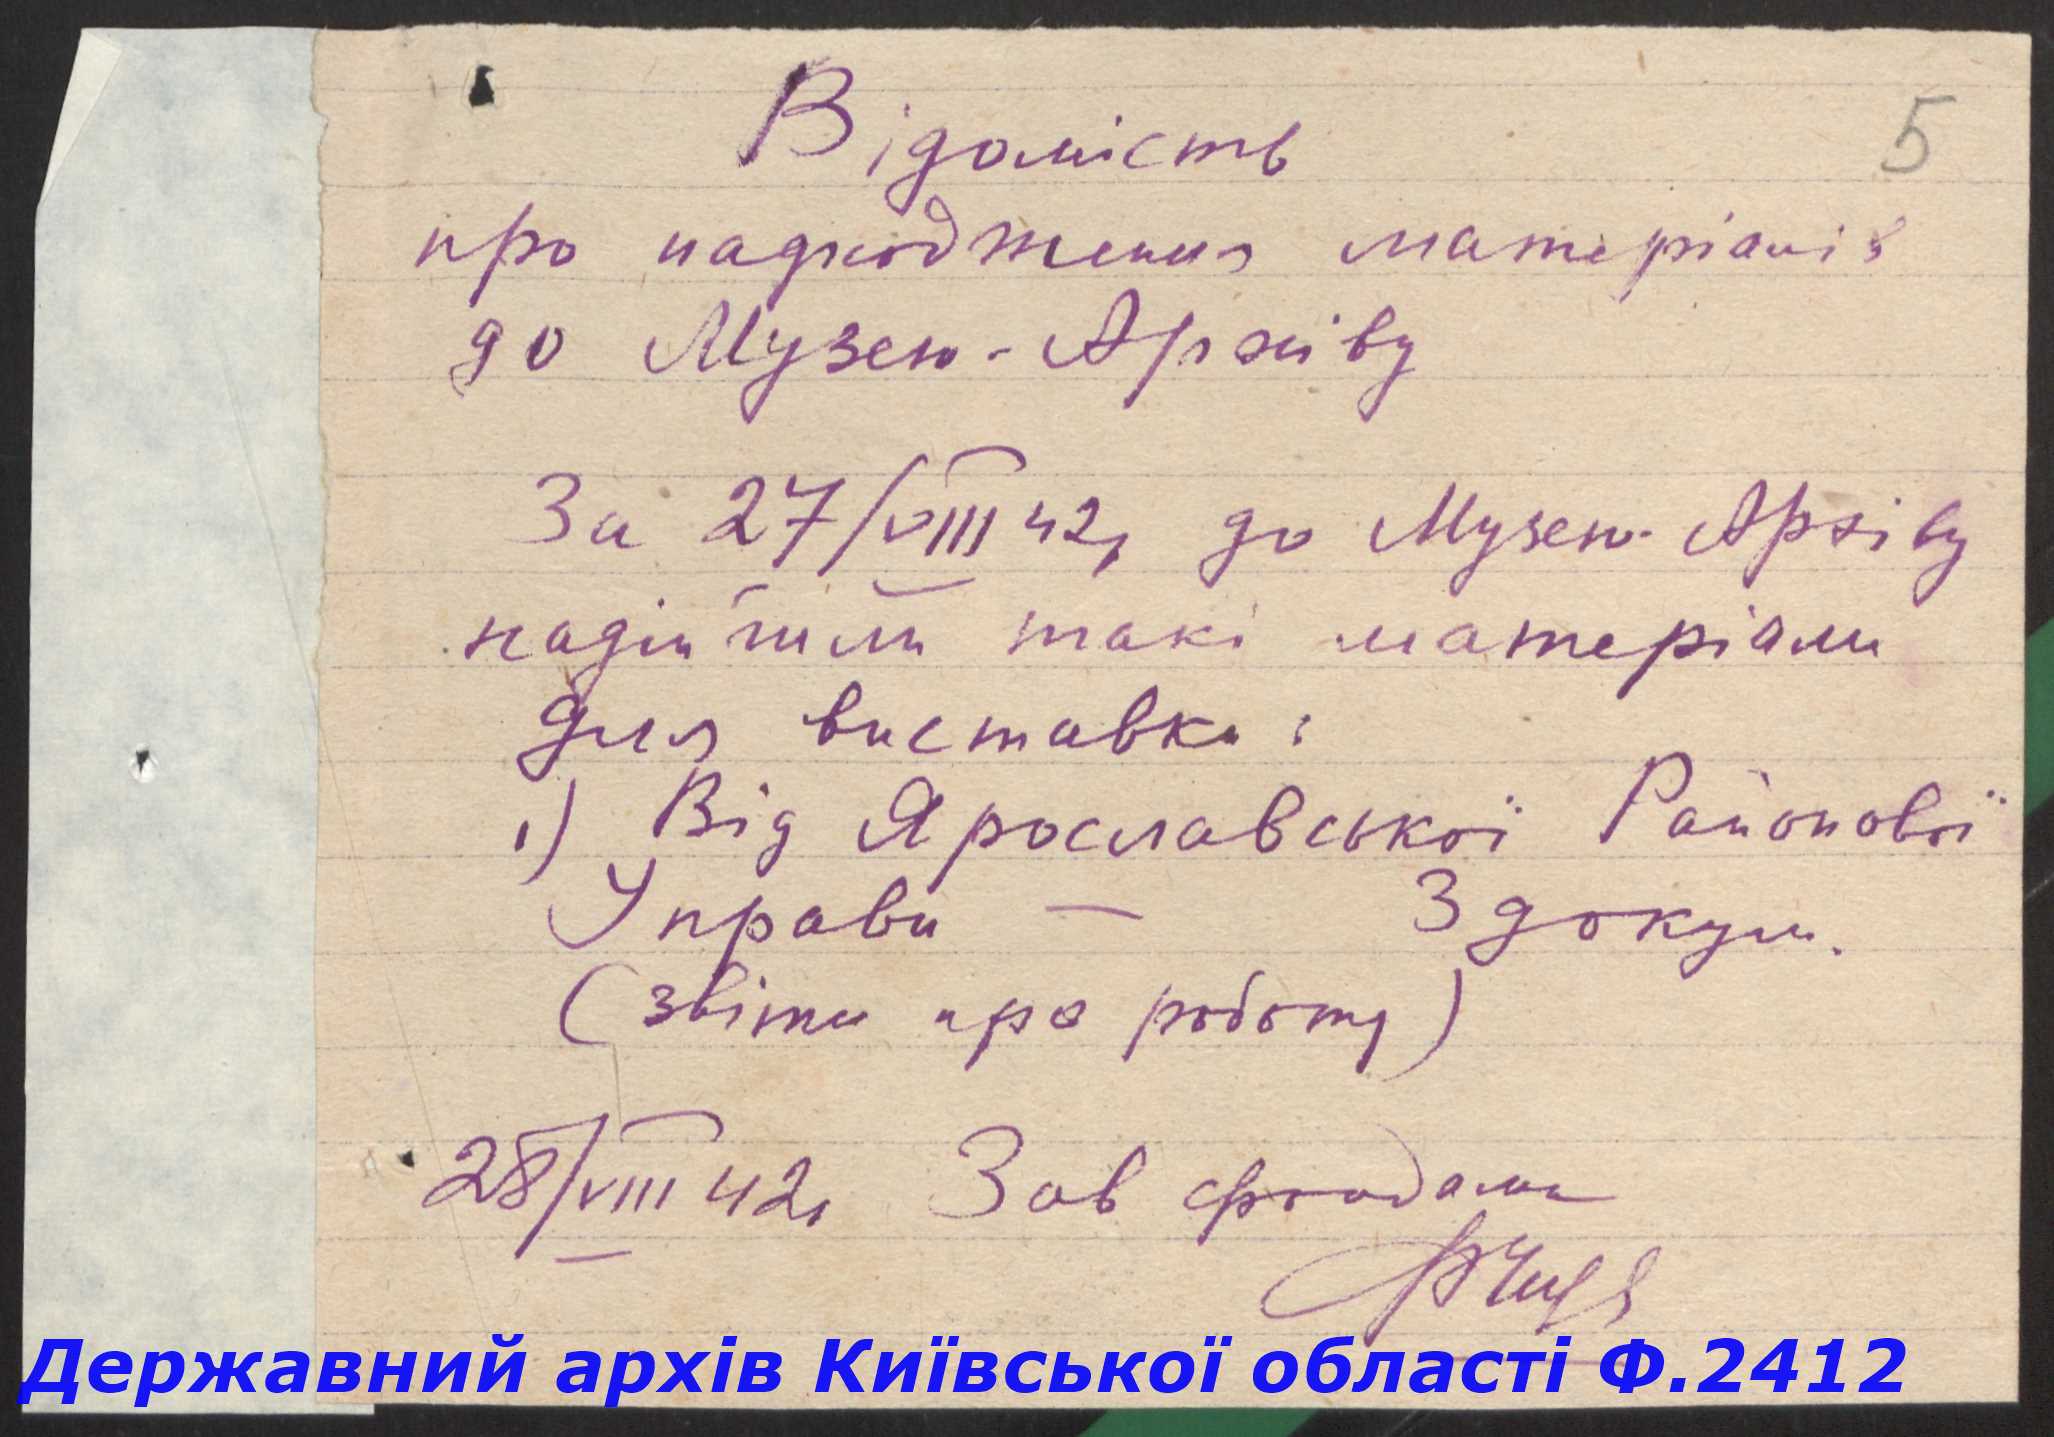 5
Відомість
про надходження матеріалів
до Музею-Архіву
За 27/VIII 42, до Музею-Архіву
надійшли такі матеріали
для виставки:
1) Від Ярославської Районової
Управи — 3 докум.
(звіти про роботу)
28/VIII 42, Зав фондами
Державний архів Київської області Ф.2412